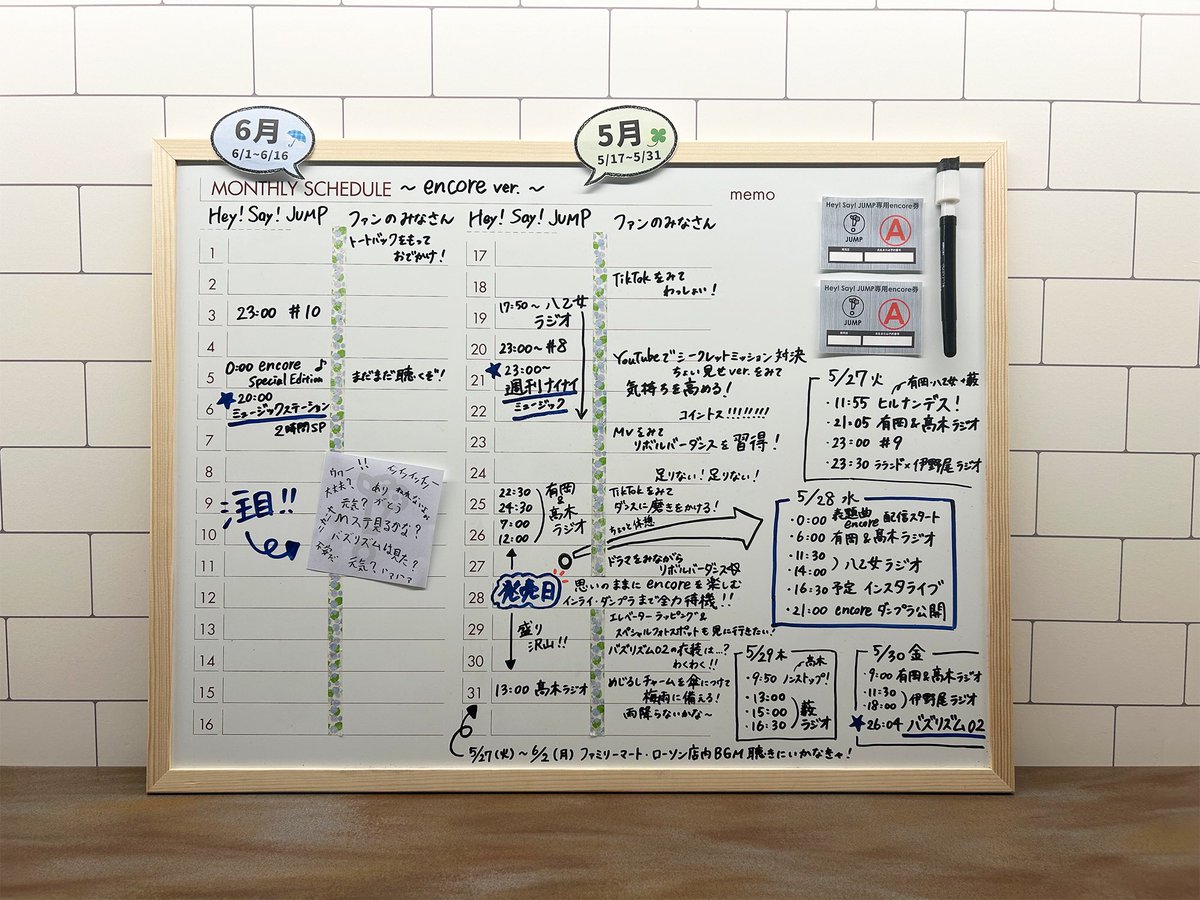 6月
6/1~6/16
5月
5/17~5/31
MONTHLY SCHEDULE ~ encore ver. ~
memo
Hey! Say! JUMP
ファンのみなさん
1
トートバックをもって
おでかけ!
2
3
23:00 #10
4
5
0:00 encore ♪
Special Edition
まだまだ聴くぞ!
6
★20:00
ミュージックステーション
2時間SP
7
8
9
10
11
12
13
14
15
16
注目!!
ウワー!!
大丈夫?
元気?
ありがとう
Mステ見るかな?
バズリズムは見た?
元気?
Hey! Say! JUMP
ファンのみなさん
17
18
TikTokをみて
わっしょい!
19
17:50~ 八乙女
ラジオ
20
23:00~ #8
YouTubeでシークレットミッション対決
ちょい見せver.をみて
気持ちを高める!
21
★23:00~
週刊ナイナイ
ミュージック
22
コイントス!!!!!!!!
23
MVをみて
リボルバーダンスを習得!
24
足りない!足りない!
25
22:30
24:30
7:00
12:00
有岡
&
髙木
ラジオ
TikTokをみて
ダンスに磨きをかける!
ちょっと休憩
26
27
ドラマをみながら
リボルバーダンス
28
発売日
思いのままにencoreを楽しむ
インライ・ダンプラまで全力待機!!
29
盛り
沢山!!
エレベーターラッピング&
スペシャルフォトスポットも見に行きたい!
30
バズリズム02の衣装は…?
わくわく!!
31
13:00 髙木ラジオ
めじるしチャームを傘につけて
梅雨に備える!
雨降らないかな~
5/27(火)~6/2(月)ファミリーマート・ローソン店内BGM聴きにいかなきゃ!
Hey! Say! JUMP専用encore券
JUMP
A
Hey! Say! JUMP専用encore券
JUMP
A
5/27 火
有岡・八乙女・薮
・11:55 ヒルナンデス!
・21:05 有岡&髙木ラジオ
・23:00 #9
・23:30 ララランド×伊野尾ラジオ
5/28 水
・0:00 表題曲 encore 配信スタート
・6:00 有岡&髙木ラジオ
・11:30
・14:00
八乙女ラジオ
・16:30予定 インスタライブ
・21:00 encoreダンプラ公開
5/29 木
髙木
・9:50 ノンストップ!
・13:00
・15:00
・16:30
薮
ラジオ
5/30 金
・9:00 有岡&髙木ラジオ
・11:30
・18:00
伊野尾ラジオ
★26:04 バズリズム02